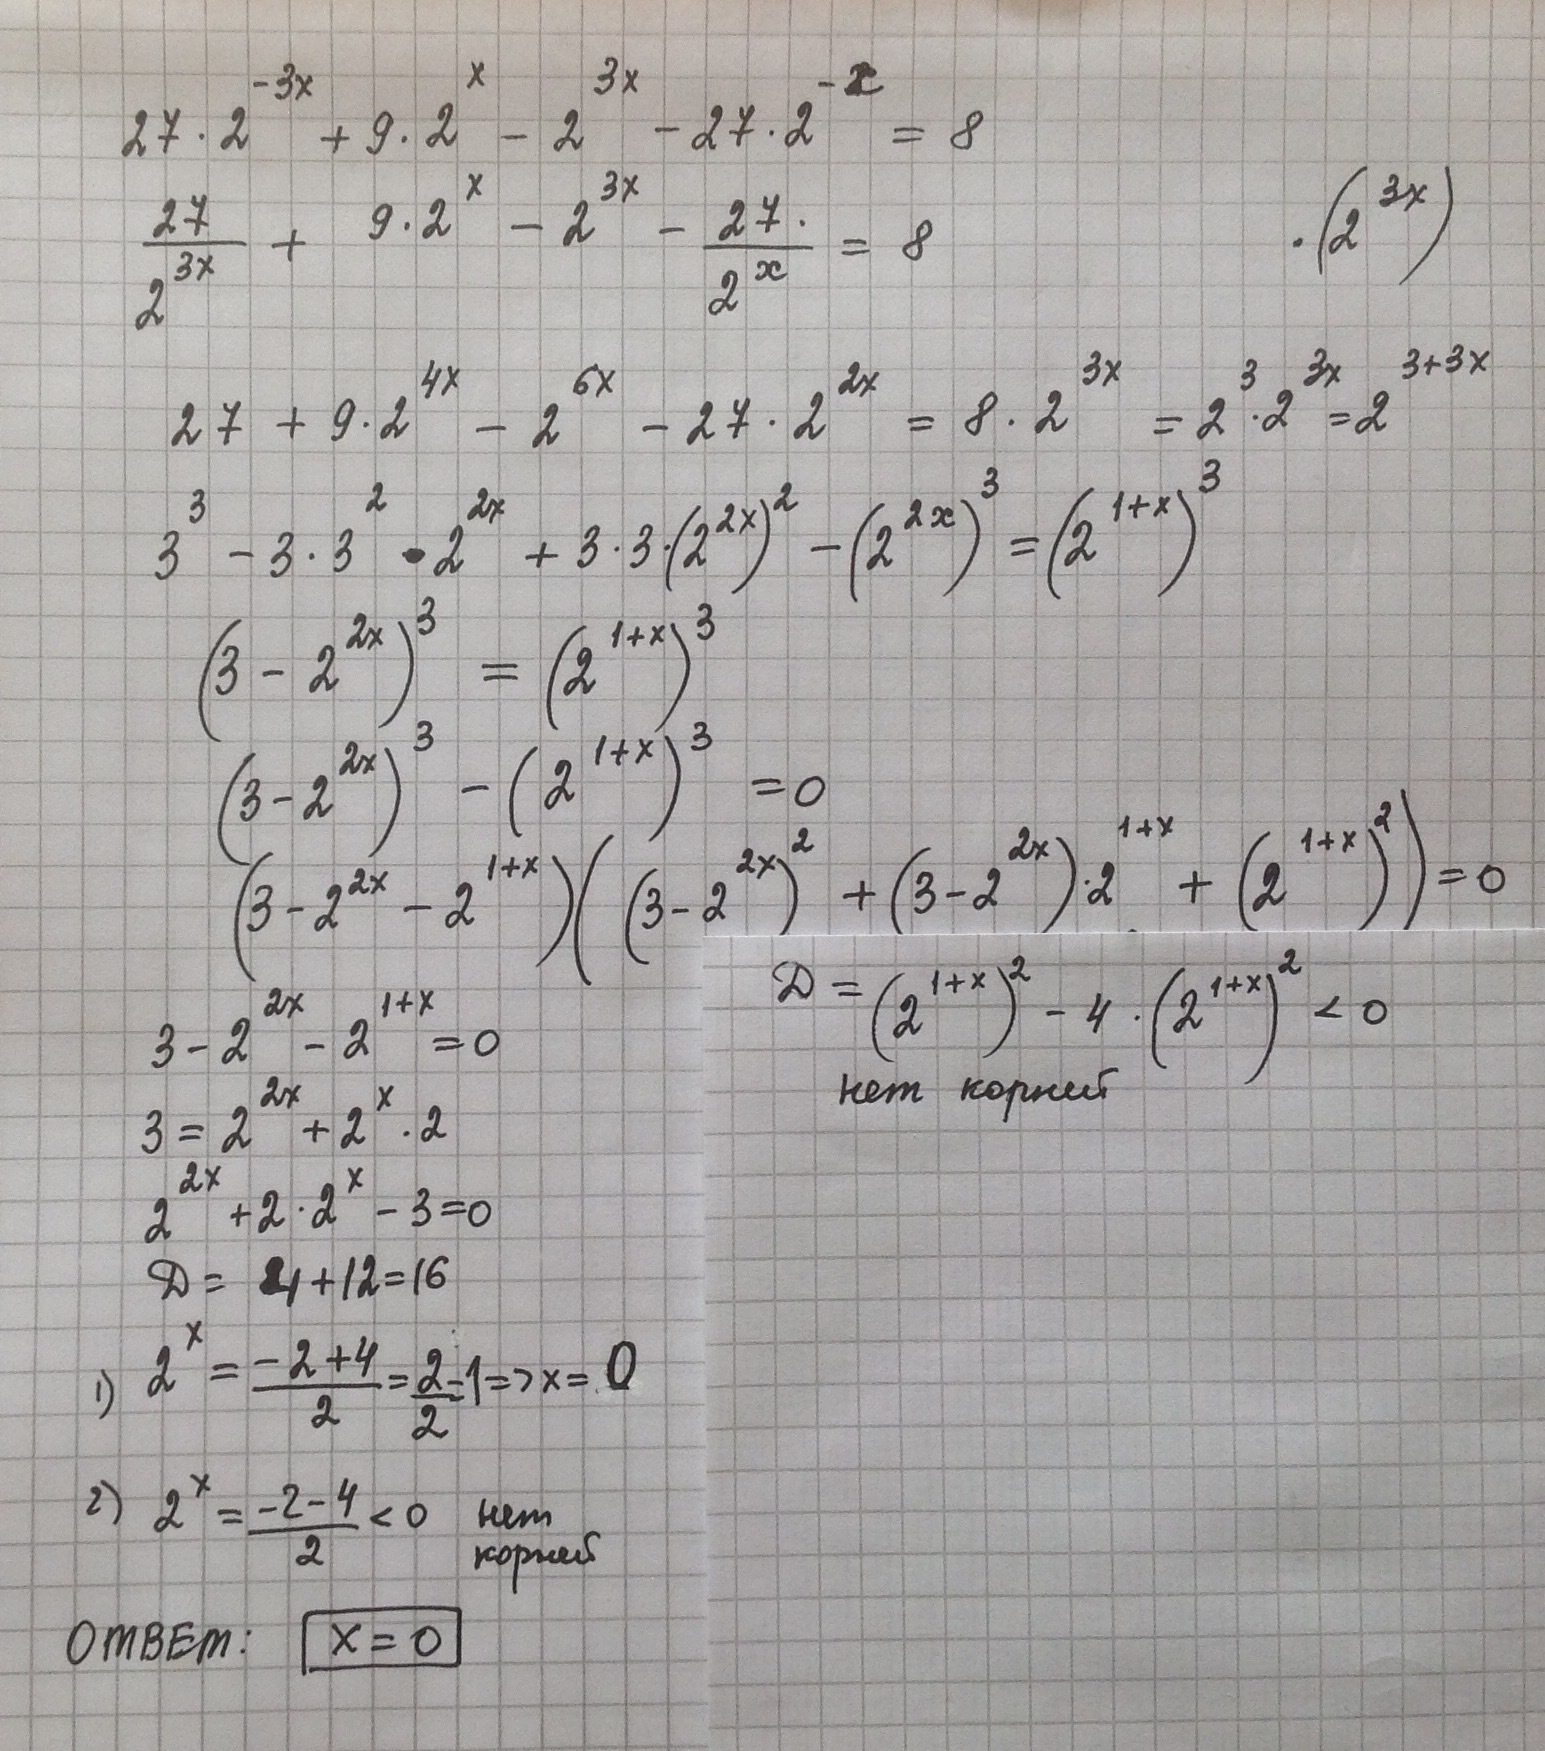 27 · 2^{-3x} + 9 · 2^{x} - 2^{3x} - 27 · 2^{-x} = 8
27/2^{3x} + 9 · 2^{x} - 2^{3x} - 27·/2^{x} = 8 · (2^{3x})
27 + 9 · 2^{4x} - 2^{6x} - 27 · 2^{2x} = 8 · 2^{3x} = 2^{3} · 2^{3x} = 2^{3+3x}
3^{3} - 3 · 3^{2} · 2^{2x} + 3 · 3 · (2^{2x})^{2} - (2^{2x})^{3} = (2^{1+x})^{3}
(3 - 2^{2x})^{3} = (2^{1+x})^{3}
(3 - 2^{2x})^{3} - (2^{1+x})^{3} = 0
(3 - 2^{2x} - 2^{1+x})((3 - 2^{2x})^{2} + (3 - 2^{2x}) · 2^{1+x} + (2^{1+x})^{2}) = 0
Д = (2^{1+x})^{2} - 4 · (2^{1+x})^{2} < 0
нет корней
3 - 2^{2x} - 2^{1+x} = 0
3 = 2^{2x} + 2^{x} · 2
2^{2x} + 2 · 2^{x} - 3 = 0
Д = 4 + 12 = 16
1) 2^{x} = (-2+4)/2 = 2/2 = 1 => x = 0
2) 2^{x} = (-2-4)/2 < 0 нет
корней
ОТВЕТ: x = 0